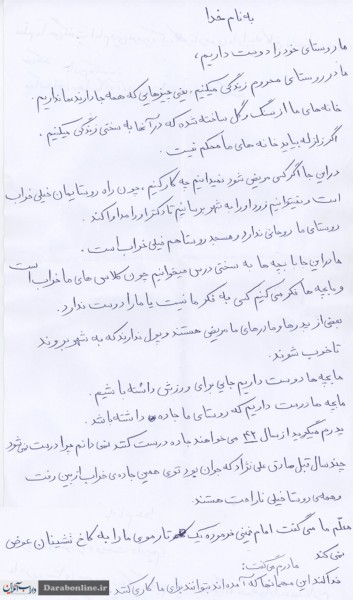 به نام خدا
ما روستای خود را دوست داریم،
ما در روستای محروم زندگی میکنیم. یعنی چیزهایی که همه جا دارند ما نداریم.
خانه های ما از سنگ و گل ساخته شده که در آنها به سختی زندگی میکنیم.
اگر زلزله بیاید خانه های ما محکم نیست.
در این جا اگر کسی مریض شود نمیدانیم چه کار کنیم، چون راه روستایمان خیلی خراب
است و نمیتوانیم زود او را به شهر برسانیم تا دکتر او را مداوا کند.
روستای ما روحانی ندارد و مسجد روستا هم خیلی خراب است.
ما در این جا با بچه ها به سختی درس میخوانیم چون کلاس های ما خراب است
و با بچه ها فکر می کنیم کسی به فکر ما نیست یا ما را دوست ندارد.
بعضی از پدرها و مادرهای ما مریض هستند و پول ندارند که به شهر بروند
تا خوب شوند.
ما بچه ها دوست داریم جایی برای ورزش داشته باشیم.
ما بچه ها دوست داریم که روستای ما جاده داشته باشد.
پدرم میگوید از سال ۴۲ می خواهند جاده درست کنند نمی دانم چرا درست نمی شود
چند سال قبل صادق علی نژاد که جوان بود توی همین جاده ی خراب از بین رفت
و همه ی روستا خیلی ناراحت هستند.
معلم ما می گفت امام خمینی فرموده یک تار موی ما را به کاخ نشینان عوض
نمی کند
مادرم می گفت:
خدا کند این مهمانها که آمده اند بتوانند برای ما کاری کنند
Darabonline.ir